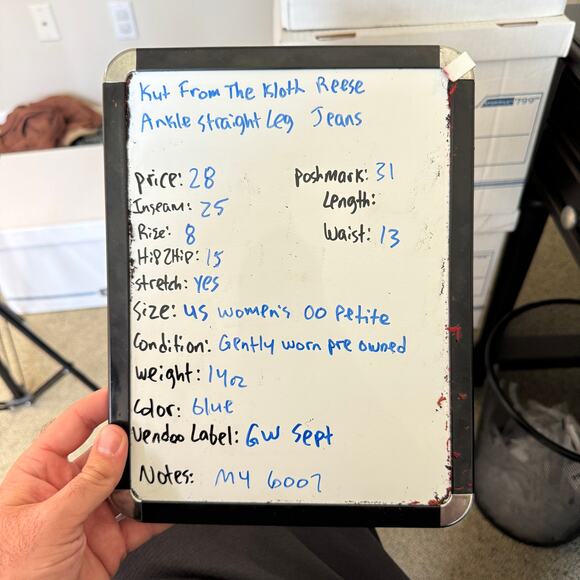 Kut From The Kloth Reese
Ankle Straight Leg Jeans
price: 28
poshmark: 31
Inseam: 25
Length:
Rise: 8
Waist: 13
Hip2Hip: 15
stretch: yes
Size: US women's 00 Petite
Condition: Gently worn pre owned
Weight: 14oz
Color: blue
Vendoo Label: GW Sept
Notes: MY 6007
799